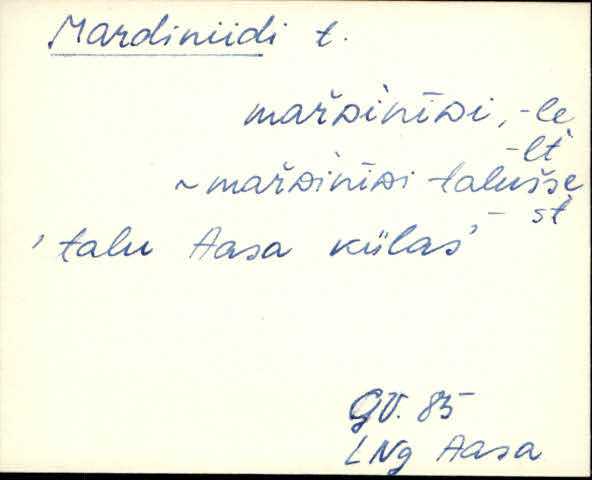 Mardiniidi t.
mařᴅ̀inīᴅi, -le
-lt
~ mařᴅinīᴅi talušše
- st
'talu Aasa külas'
GV. 85
LNg Aasa